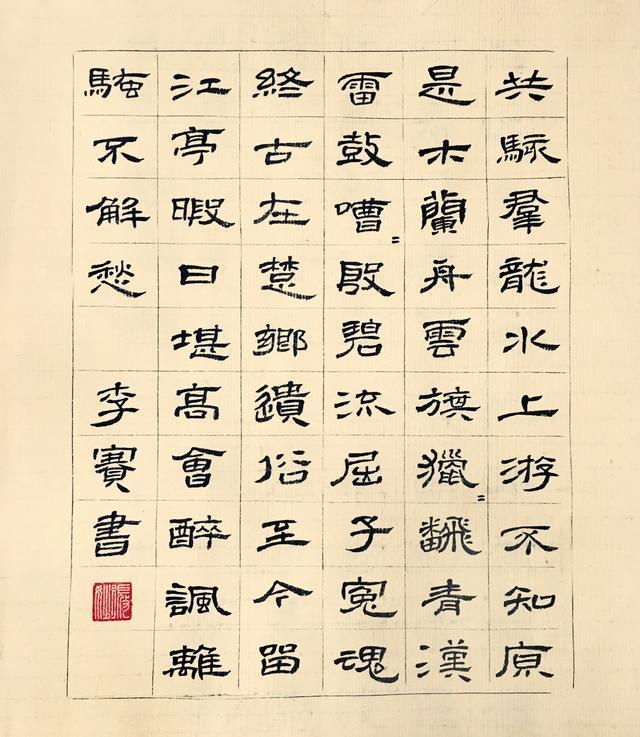 共駭羣龍水上游不知原
是木蘭舟雲旗獵〻飜青漢
雷鼓嘈〻殷碧流屈子寃魂
終古在楚鄉遺俗至今留
江亭暇日堪髙會醉諷離
騷不解愁 李賽書